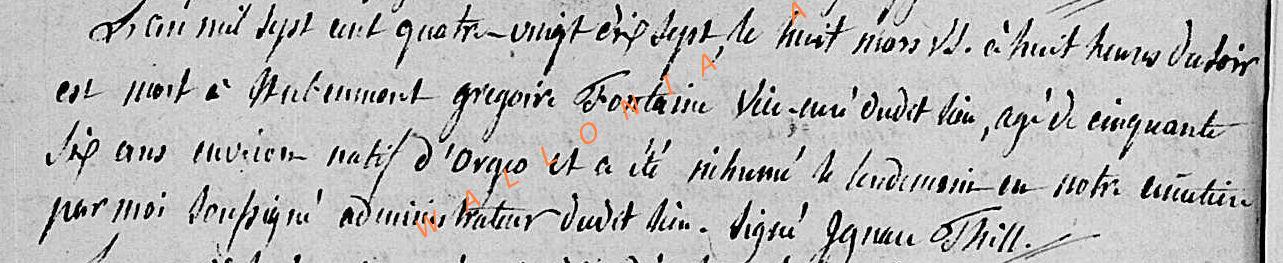 L'an mil sept cent quatre-vingt dix sept, le huit mars v.s. à huit heures du soir
est mort à gregoire Fontaine vic-curé dudit lieu, agé de cinquante
six ans environ natif d'Orgeo et a été inhumé le lendemain en notre cimetiere
par moi soussigné administrateur dudit lieu. signé Ignace Thill.
WALLONIA